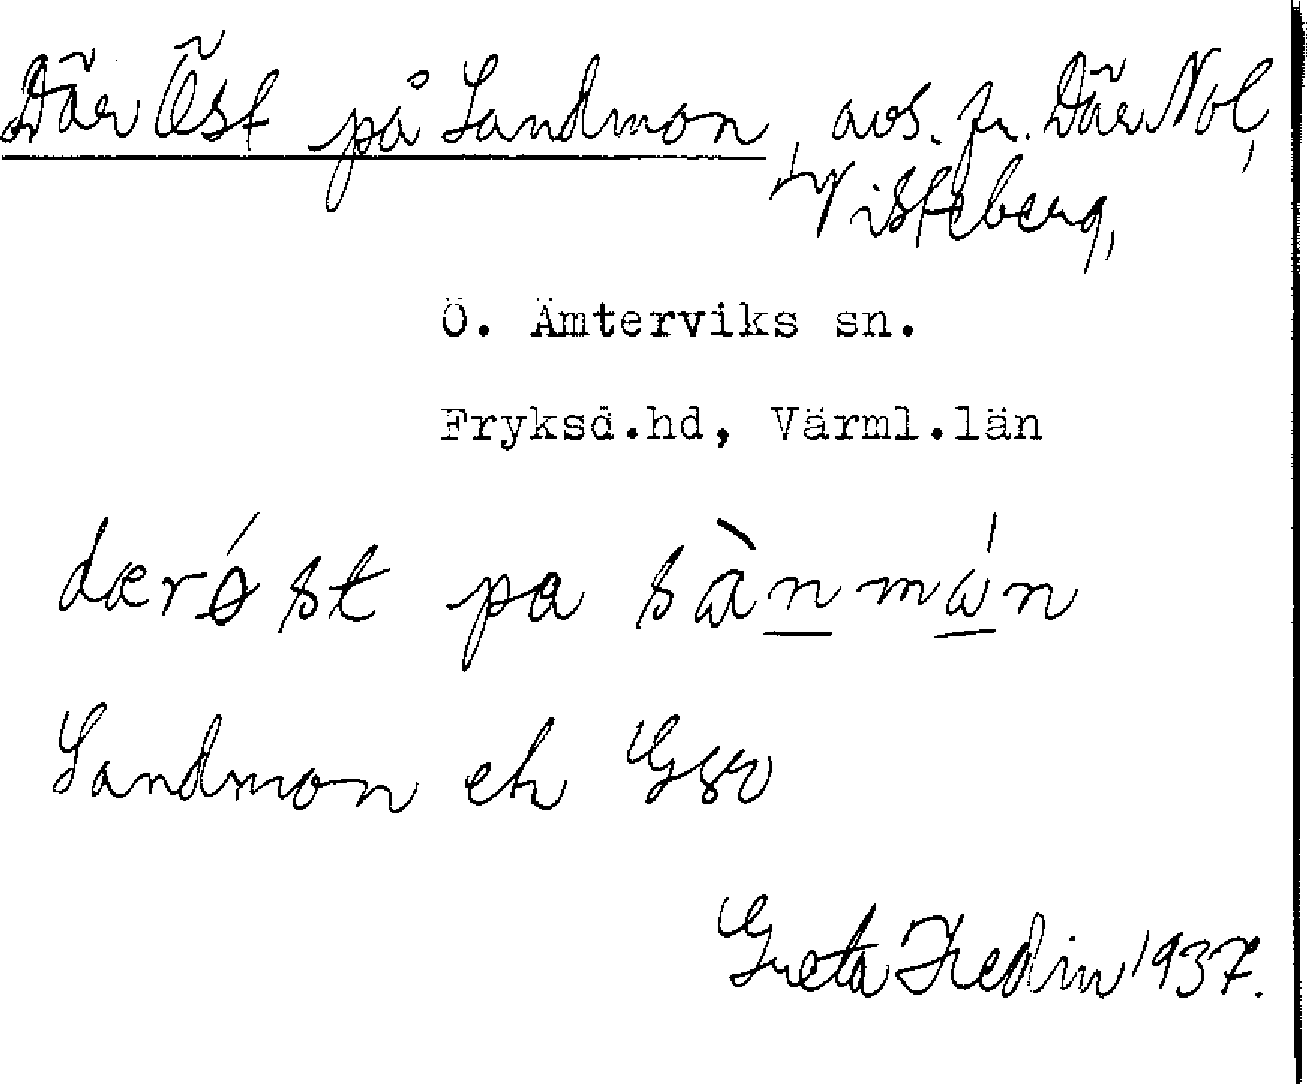 Där Öst på Sandmon, avs. fr. Där Nol,
Visteberg,
Ö. Ämterviks sn.
Fryksd.hd, Värml.län
dærǿst pa sànmán
Sandmon ek Ggo
Greta Hedin 1937.